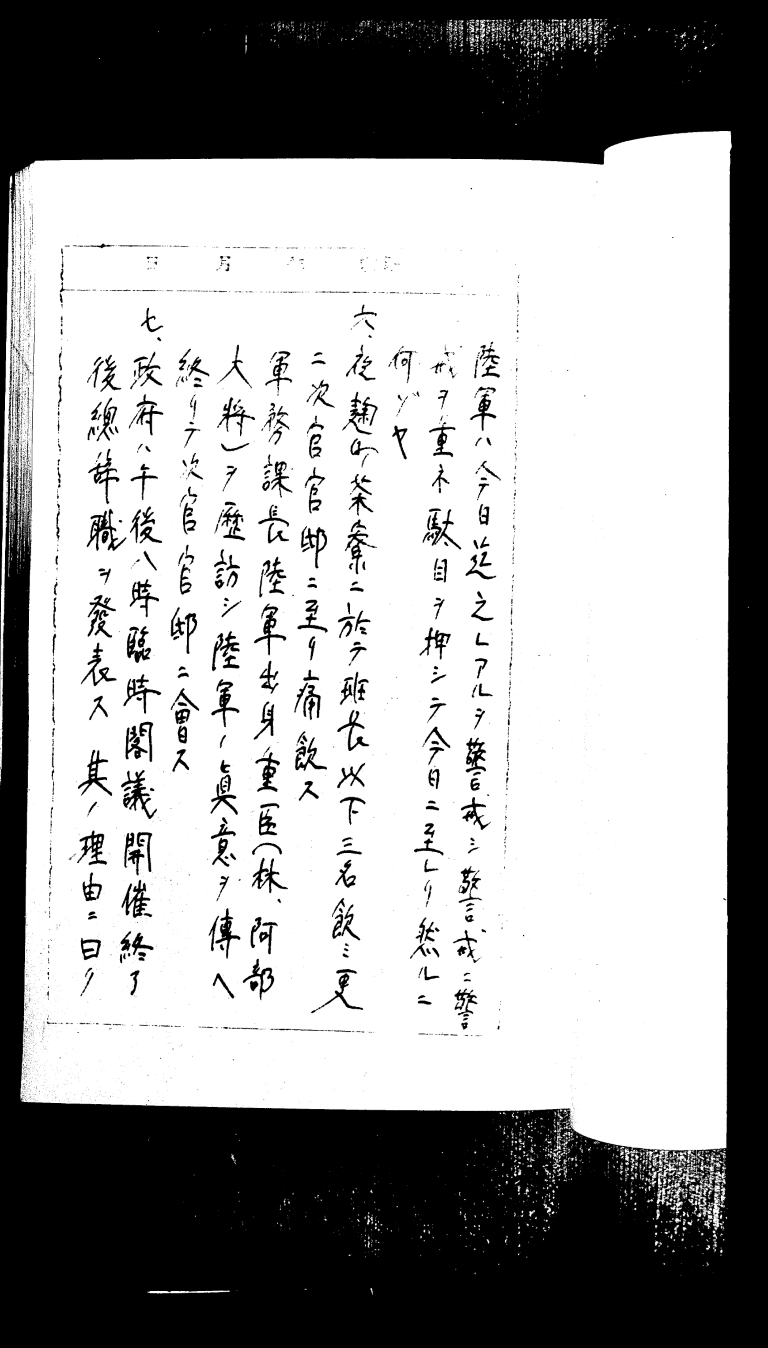 陸軍ハ今日迄之レアルヲ警戒シ警戒ニ警
戒ヲ重ネ駄目ヲ押シテ今日ニ至レリ然ルニ
何ゾヤ
六、夜麹町茶寮ニ於テ班長以下三名飲ミ更
ニ次官官邸ニ至リ痛飲ス
軍務課長陸軍出身重臣(林、阿部
大将)ヲ歴訪シ陸軍ノ眞意ヲ傳ヘ
終リテ次官官邸ニ會ス
七、政府ハ午後八時臨時閣議開催終了
後總辞職ヲ發表ス其ノ理由ニ曰ク
年 月 日